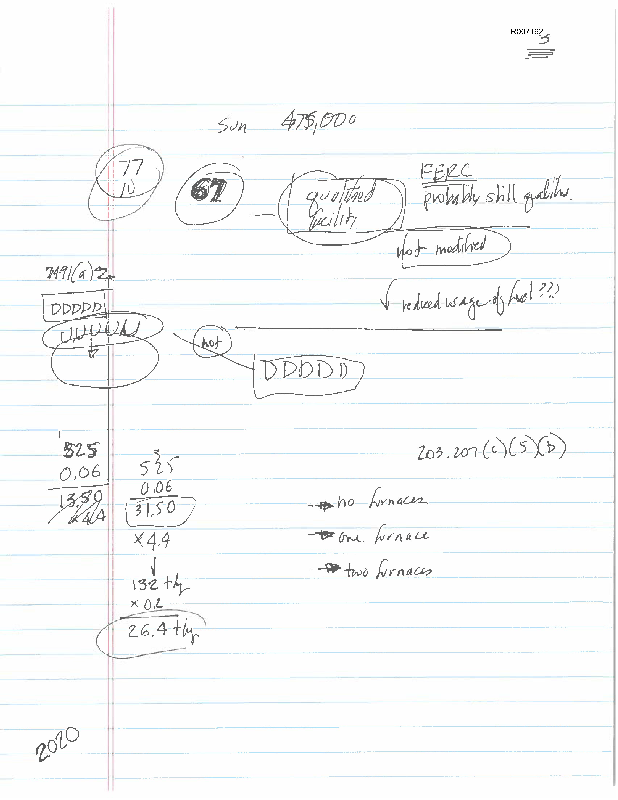 R007192
3
Sun 475,000
77
10
67
qualified
facility
FERC
probably still qualifies.
not modified
7491(a)2
DDDDD
UUUUU
↓ reduced usage of fuel??)
not
DDDDD
525
0.06
13.50
x 4.4
3
525
0.06
31.50
x 4.4
↓
132 t/y
x 0.2
26.4 t/y
203.207(c)(5)(b)
→ no furnaces
→ one furnace
→ two furnaces
2020